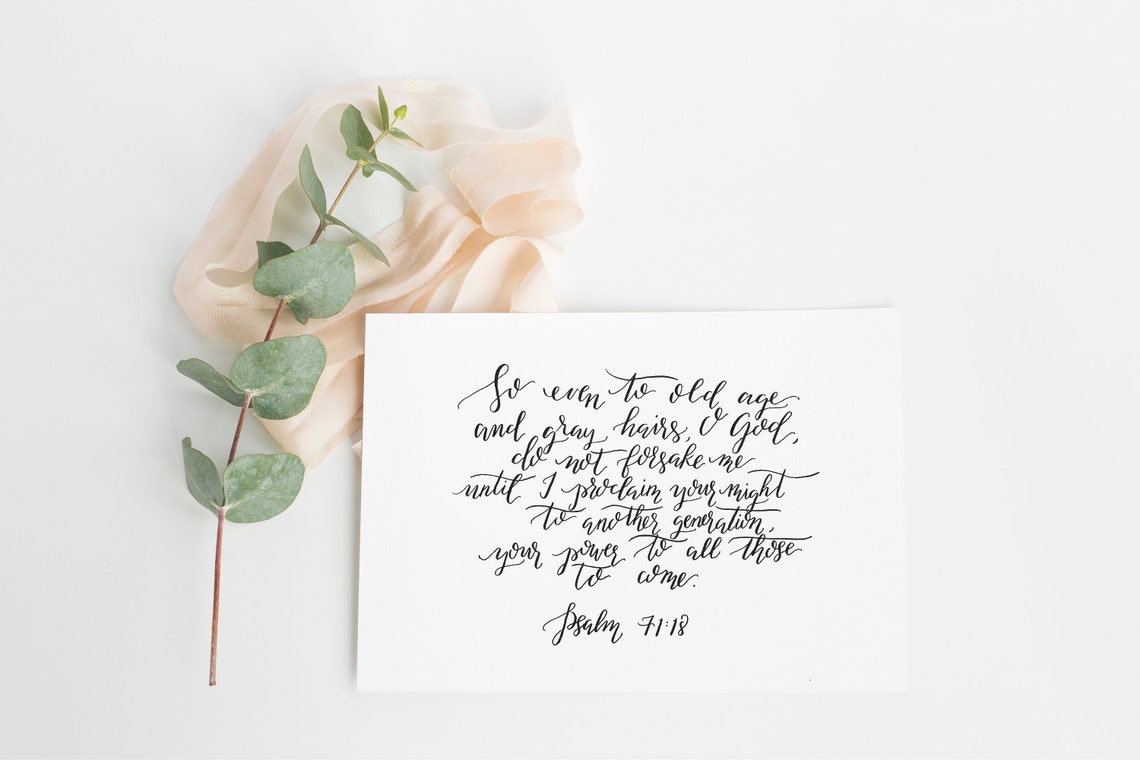 So even to old age
and gray hairs, O God,
do not forsake me
until I proclaim your might
to another generation,
your power to all those
to come.
Psalm 71:18